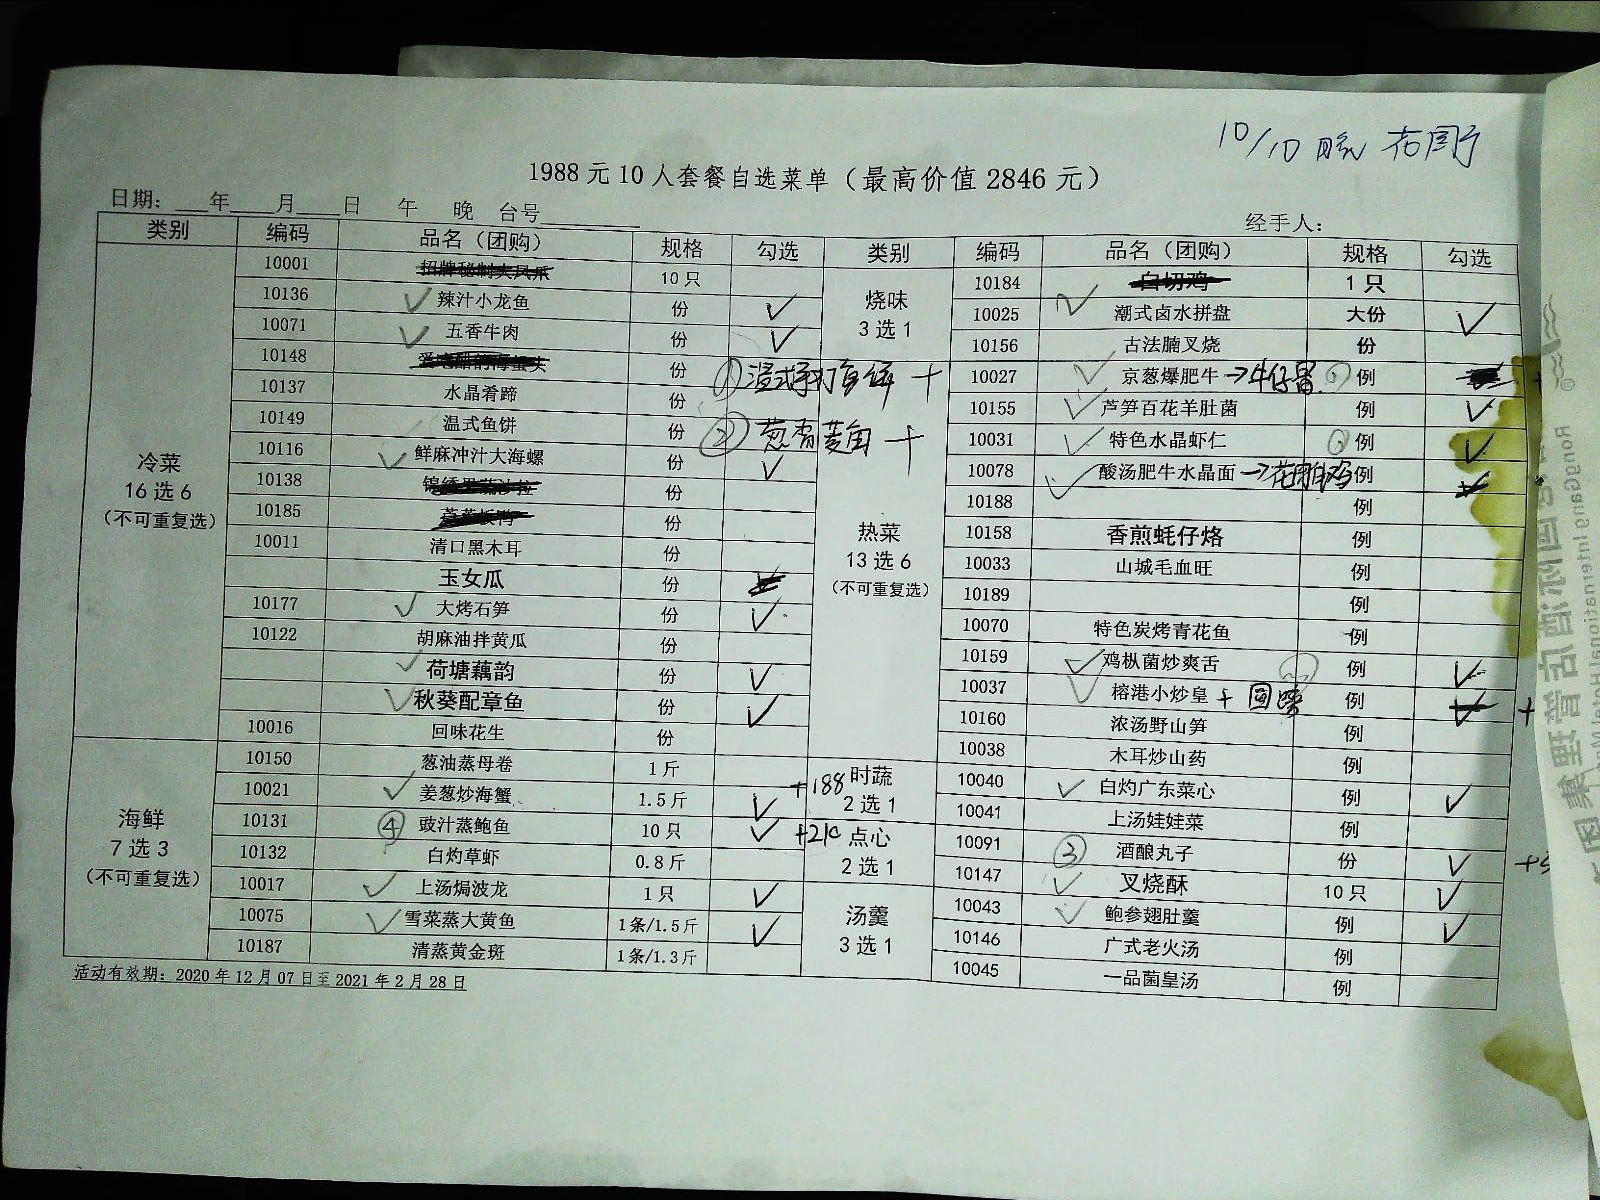 10/10 晚
1988 元 10 人套餐自选菜单（最高价值 2846 元）
日期：___年____月____日 午 晚 台号________ 经手人：
类别 编码 品名（团购） 规格 勾选
冷菜
16 选 6
（不可重复选）
10001 10 只
10136 辣汁小龙鱼 份
10071 五香牛肉 份
10148 份
10137 水晶肴蹄 份
10149 温式鱼饼 份
10116 鲜麻冲汁大海螺 份
10138 份
10185 份
10011 清口黑木耳 份
玉女瓜 份
10177 大烤石笋 份
10122 胡麻油拌黄瓜 份
荷塘藕韵 份
秋葵配章鱼 份
10016 回味花生 份
海鲜
7 选 3
（不可重复选）
10150 葱油蒸母卷 1 斤
10021 姜葱炒海蟹 1.5 斤
10131 ④ 豉汁蒸鲍鱼 10 只
10132 白灼草虾 0.8 斤
10017 上汤焗波龙 1 只
10075 雪菜蒸大黄鱼 1条/1.5 斤
10187 清蒸黄金斑 1条/1.3 斤
类别 编码 品名（团购） 规格 勾选
烧味
3 选 1
10184 白切鸡 1 只
10025 潮式卤水拼盘 大份
10156 古法腩叉烧 份
① 温式手打鱼饼 +
② 葱香菱角 +
热菜
13 选 6
（不可重复选）
10027 京葱爆肥牛 →牛仔骨 例
10155 芦笋百花羊肚菌 例
10031 特色水晶虾仁 例
10078 酸汤肥牛水晶面 →花雕鸡 例
10188 例
10158 香煎蚝仔烙 例
10033 山城毛血旺 例
10189 例
10070 特色炭烤青花鱼 例
10159 鸡枞菌炒爽舌 例
10037 榕港小炒皇 + 例 +
10160 浓汤野山笋 例
10038 木耳炒山药 例
+188 时蔬
2 选 1
10040 白灼广东菜心 例
10041 上汤娃娃菜 例
点心
2 选 1
10091 ③ 酒酿丸子 份
10147 叉烧酥 10 只
汤羹
3 选 1
10043 鲍参翅肚羹 例
10146 广式老火汤 例
10045 一品菌皇汤 例
活动有效期：2020 年 12 月 07 日至 2021 年 2 月 28 日